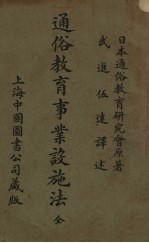 日本通俗教育研究會原著
武進伍達譯述
通俗教育事業設施法 全
上海中國圖書公司藏版